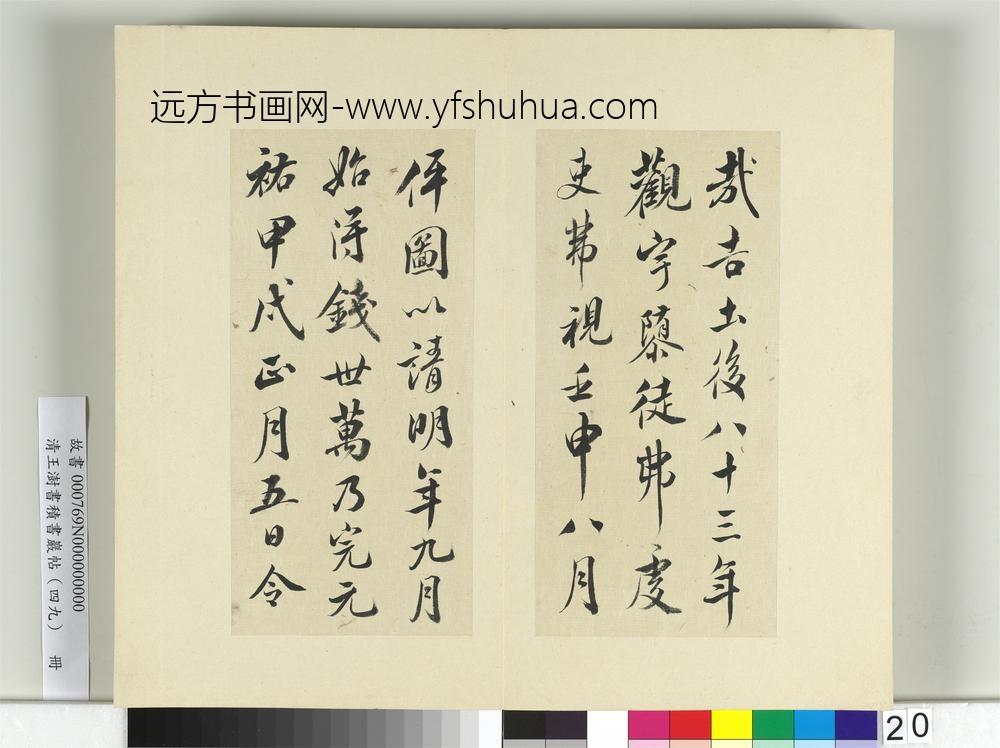 远方书画网-www.yfshuhua.com
哉吉土後八十三年
觀宇隳徒弗處
吏弗視壬申八月
伻圖以請明年九月
始得錢卅萬乃完元
祐甲戌正月五日令
故書 000769N000000000
清王澍書積書巖帖（四九） 冊
20